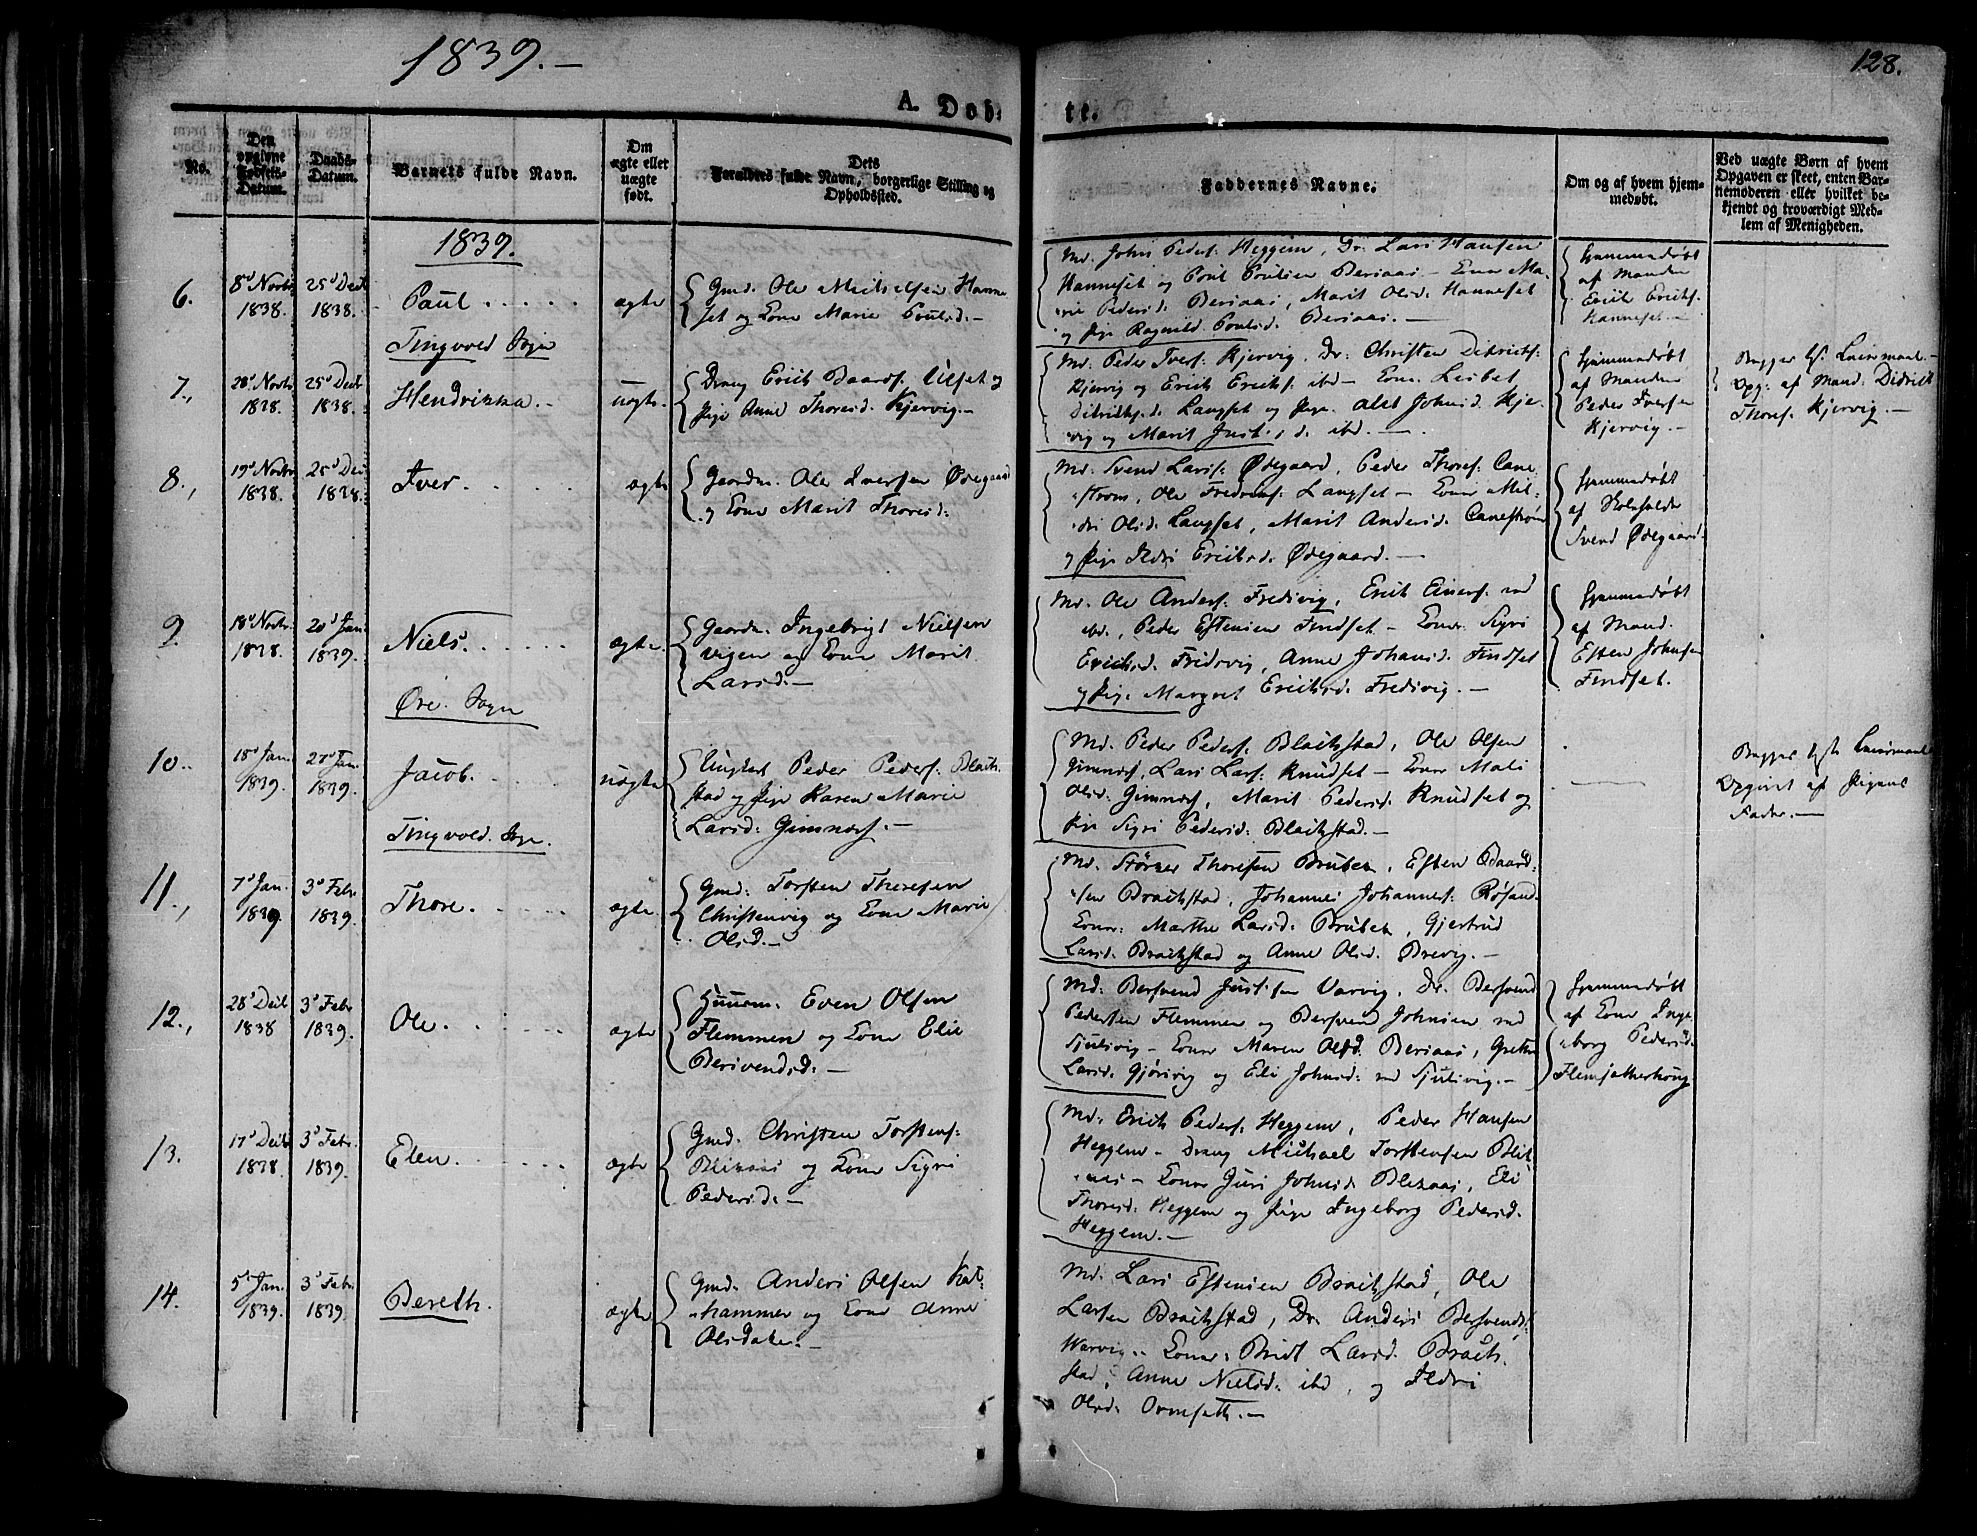 1839.-
128.
A. Døbte.
No.
Den opgivne Fødsels-Datum.
Daabs-Datum.
Barnets fulde Navn.
Om ægte eller uægte født.
Dets Forældres fulde Navn, borgerlige Stilling og Opholdssted.
Faddernes Navne.
Om og af hvem hjemmedøbt.
Ved uægte Børn af hvem
Opgaven er skeet, enten Bar-
nemoderen eller hvilket be-
kjendt og troværdigt Med-
lem af Menigheden.
1839.
6.
8d Novbr 1838.
25d Decbr 1838.
Paul.
ægte
Gmd. Ole Michelsen Hanne
set og Kone Marie Poulsd.-
Md. John Peders. Heggem, Dr. Lars Hansen
Hanneset og Poul Poulsen Bersaas - Koner Ma-
rie Pedersd. Bersaas, Marit Olsd. Hanneset
og Pige Ragnild Poulsd. Bersaas.-
Hjemmedøbt
af Manden
Erich Erichs.
Hanneset.-
Tingvold Sogn
7.,
28d Novbr 1838.
25d Decbr 1838.
Hendrikka.-
uægte
Dreng Erich Baards. Ulset og
Pige Anne Thoresd. Kjervig.-
Md. Peder Ivers. Kjervig, Dr. Christen Didrichs.
Kjervig og Erich Erichs. ibd- Koner Lisbet
Didrichsd. Langset og Pige Alet Johnsd. Kjer-
vig og Marit Justsd. ibd.-
Hjemmedøbt
af Manden
Peder Iversen
Kjervig.-
Opg: af Mand: Didrich
Thores. Kjervig.-
8.,
19d Novbr 1838.
25d Decbr 1838.
Iver.
ægte
Gaardm. Ole Iversen Ødegaard
og Kone Marit Thoresd:
Md. Svend Lars. Ødegaard, Peder Thores. Cane
strøm, Ole Fredriks. Langset - Koner Mil-
dri Olsd. Langset, Marit Andersd. Canestrøm
og Pige Ildri Erichsd. Ødegaard.-
Hjemmedøbt
af Skoleholder
Svend Ødegaard.
9.
18d Novbr. 1838.
20d Jan. 1839.
Niels.
ægte.
Gaardm. Ingebrigt Nielsen
Vigen og Kone Marit
Larsd.-
Md. Ole Anders. Fredsvig, Erich Einers. ved
ibd., Peder Estensen Findset - Koner Sigri
Erichsd. Fredsvig, Anne Johansd. Findset
og Pige Margret Erichsd. Fredsvig.-
Hjemmedøbt
af Mand.
Esten Johnsen
Findset.
Øre. Sogn
10.
18d Jan. 1839.
27d Jan. 1839.
Jacob.
uægte
Ungkarl Peder Peders. Blach
stad og Pige Karen Marie
Larsd. Gimnæs.-
Md. Peder Peders. Blachstad, Ole Olsen
Gimnæs, Lars Lars. Knudset - Koner Mali
Olsd. Gimnæs, Marit Pedersd. Knudset og
Pige Sigri Pedersd. Blachstad.-
Opgivet af Pigens
Fader.-
Tingvold. Sogn.
11.,
7d Jan. 1839
3d Febr. 1839.
Thore.
ægte.
Gmd: Torsten Thoresen
Christenvig og Kone Marie
Olsd.-
Md. Størker Thoresen Brubek, Esten Baard-
sen Brachstad, Johannes Johannes. Røsand
Koner: Marthe Larsd. Brubek, Gjertrud
Larsd. Brachstad og Anne Olsd. Brevig.-
12.,
28d Decbr 1838
3d Febr 1839.
Ole.
ægte
Huusm. Even Olsen
Flemmen og Kone Elie
Bersvendsd.-
Md: Bersvend Justsen Varvig, Dr. Bersvend
Pedersen Flemmen og Bersvend Johnsen ved
Sjulsvig - Koner Maren Olsd. Bersaas, Grethe
Larsd. Gjørsvig og Eli Johnsd: ved Sjulsvig.-
Hjemmedøbt
af Kone Inge
borg Pedersd.
13.
17d Decbr 1838.
3d Febr. 1839.
Elen.
ægte
Gmd. Christen Torstens:
Blikaas og Kone Sigri
Pedersd.-
Md: Erich Peders. Heggem, Peder Hansen
Heggem - Dreng Michael Torstensen Blik
aas- Koner Guri Johnsd. Blikaas, Eli
Thoresd. Heggem og Pige Ingeborg Pedersd.
Heggem.-
14.
5d Jan. 1839.
3d Febr 1839.
Bereth.
ægte
Gmd. Anders Olsen Kat-
hammer og Kone Anne
Olsdatter.-
Md. Lars Estensen Brachstad, Ole
Larsen Brachstad, Dr. Anders Bersvends.
Warvig.. Koner: Brit Larsd. Brach-
stad, Anne Nielsd. ibd, og Ildri
Olsd. Ormseth.-